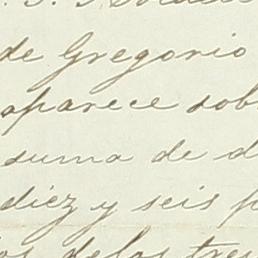 de Gregorio
aparece sob
suma de d
diez y seis p
de los tres